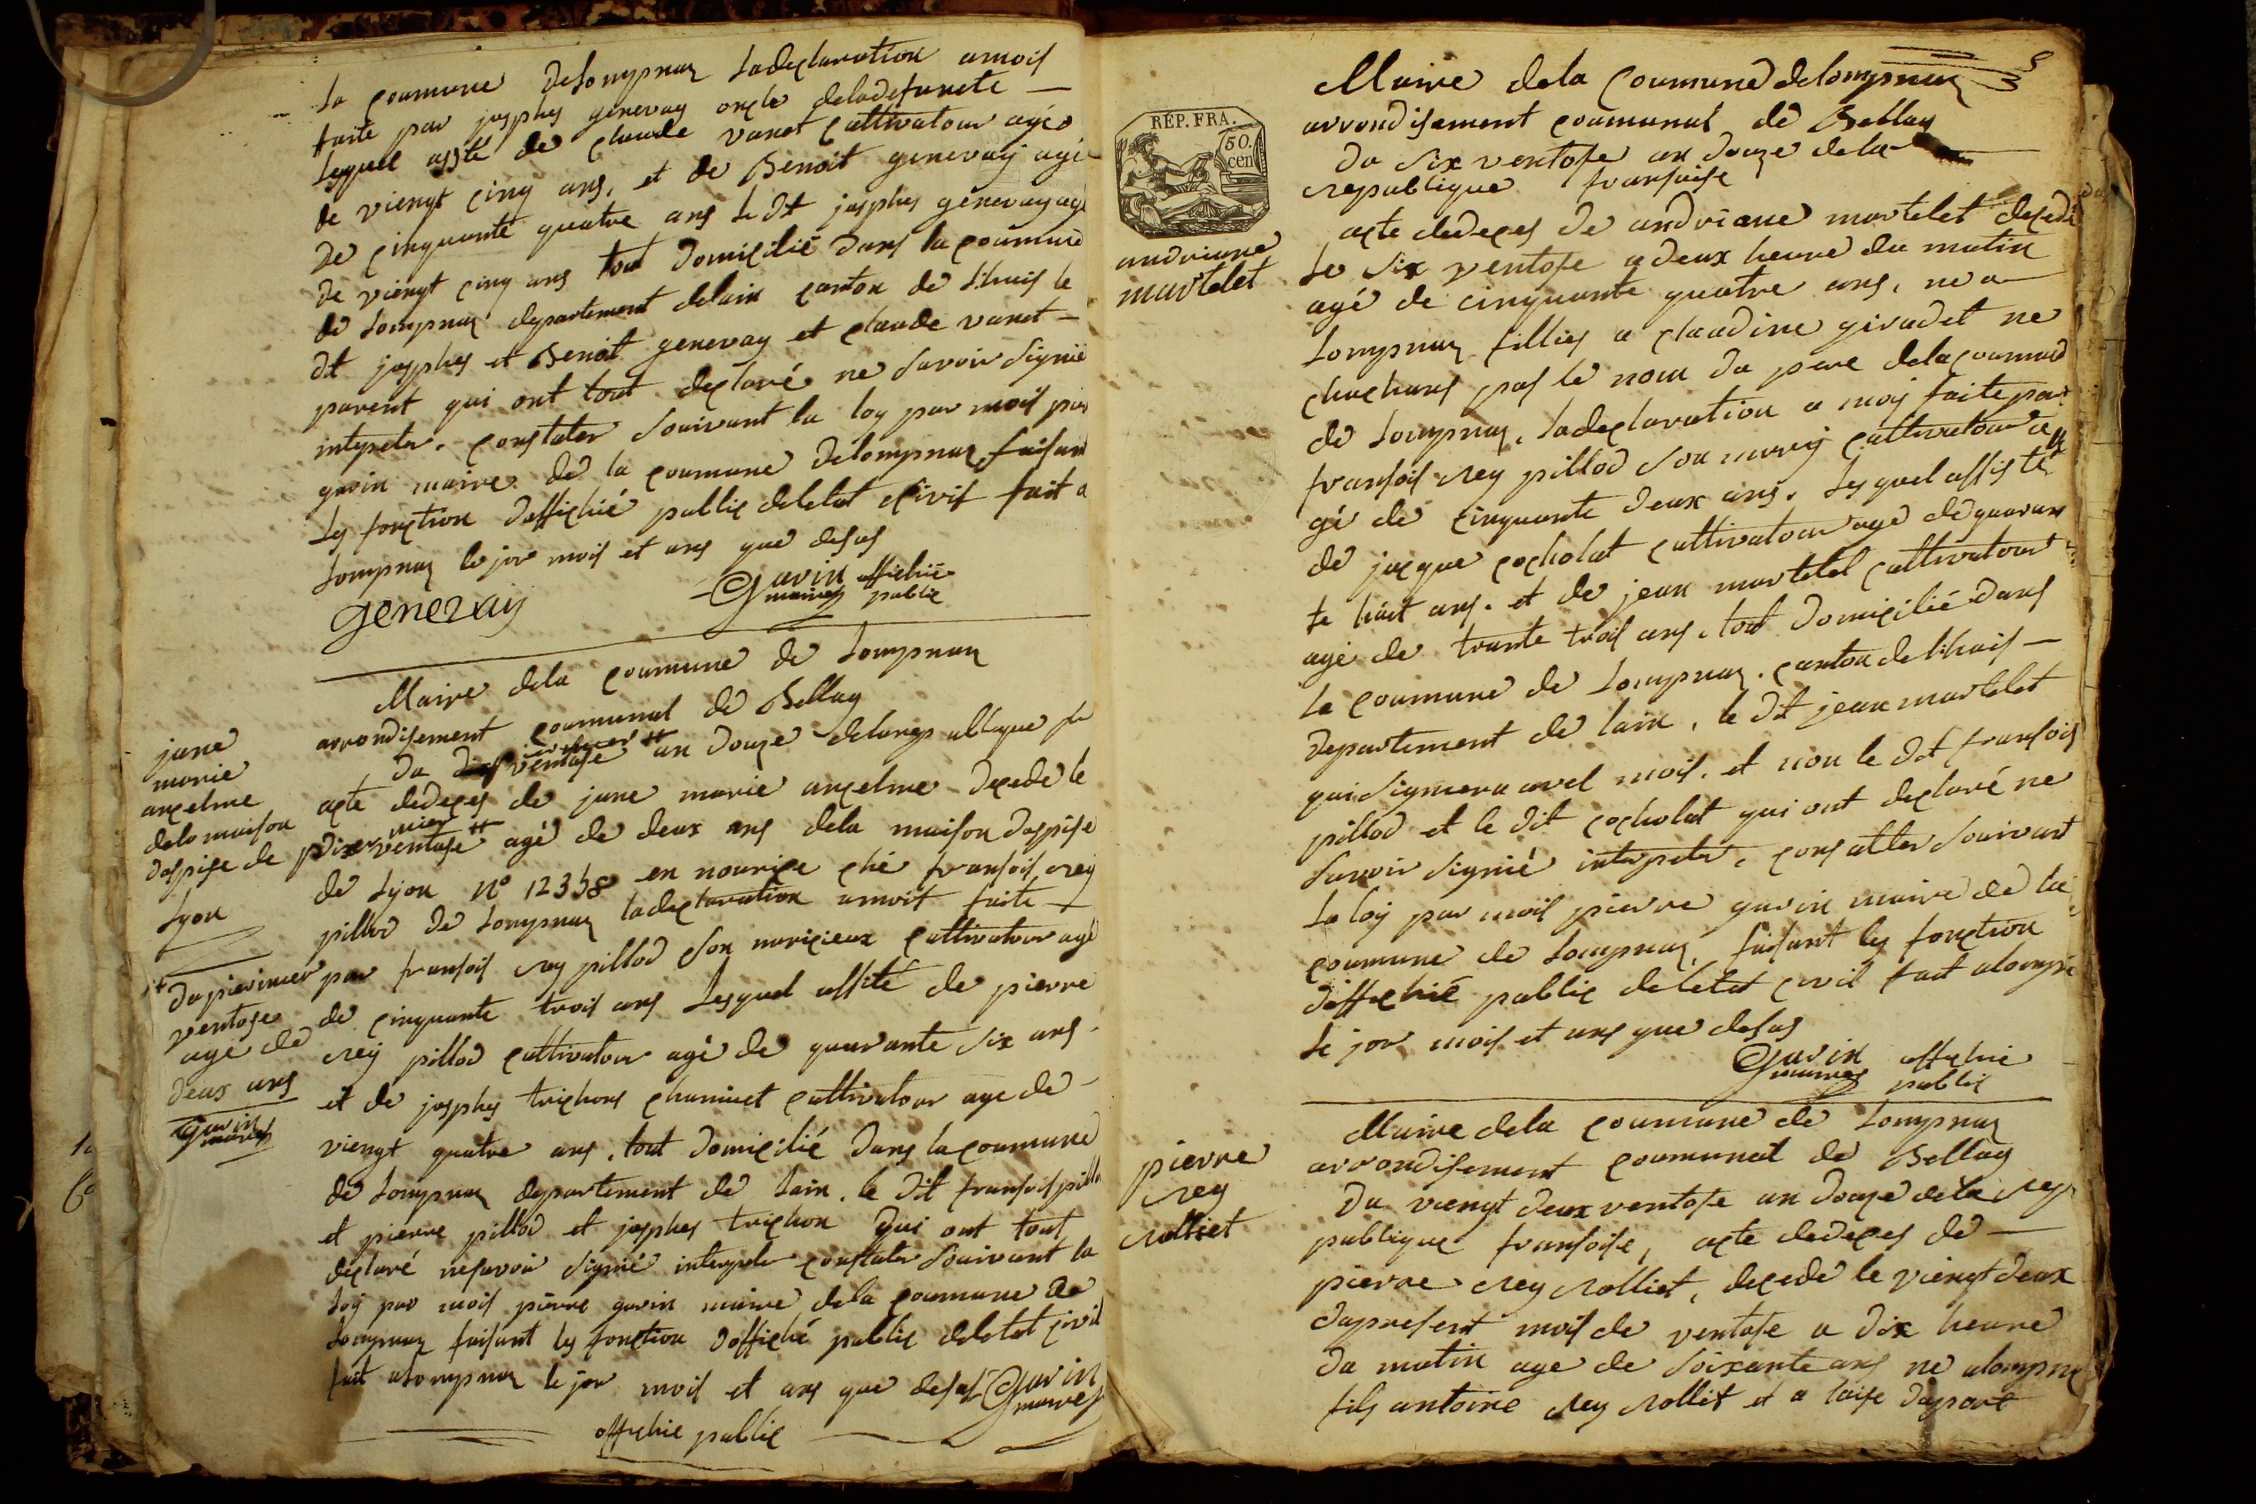 la coumune delompnaz ladeclaration amois
faite par josphes genevay oncle deladefuncte
lequel assté de claude vanet cultivatour agé
de viengt cinq ans, et de Benoit genevay agé
de cinquante quatre ans le dt josphes genevay agé
de viengt cinq ans tout domicilié dans la coumune
de lompnaz departement delain canton de lhuis le
dt josphes et Benoit genevay et claude vanet
parent qui ont tout declaré ne savoir signié
interpeler. constater souivant la loy par mois pier
gavin maire de la coumune delompnaz faisant
les fonction doffichié public deletat civil fait a
lompnaz le jor mois et ans que desus
genevay
Gavin offichié
maire public
Maire dela coumune de lompnaz
arrondisement coumunal de Bellay
du ventose an douze delarepublique
acte dedeces de jane marie anselme decede le
ventose agé de deux ans dela maison dospise
de lyon n° 12358 en nourice ché fransois rey
pillod de lompnaz ladeclaration amois faite
par fransois rey pillod son nouricieux cultivatour agé
de cinquante trois ans lesquel assité de pierre
rey pillod cultivatour agé de quarante six ans
et de josphes trichons chaninet cultivatour age de
viengt quatre ans, tout domicilié dans la coumune
de lompnaz departement de lain, le dit fransois pillod
et pierre pillod et josphes trichon qui ont tout
declaré nesavoir signié interpeler constater souivant la
loy par mois pierre gavin maire dela coumune de
lompnaz faisant les fonction dofficié public deletat civil
fait alompnaz le jor mois et ans que desus Gavin
maire
offichie public
jane
marie
anselme
dela maison
dospise de
lyon
du pierimier
ventose
agé de
deux ans
gavin
maire
Maire dela coumune delompnaz
arrondisement coumunal de Bellay
du six ventose an douze dela
republique fransaise
acte dedeces de andriane martelet decedé
le six ventose a deux heure du matin
agé de cinquante quatre ans, ne a
lompnaz fillies a claudine giradet ne
chachans pas le nom du pere delacoumune
de lompnaz, ladeclaration a mois faite par
fransois rey pillod son marij cultivatour a
gé de cinquante deux ans, lesquel assisté
de jacque cocholat cultivatour agé de quaran
te huit ans, et de jean martelet cultivatour
agé de trante trois ans, tout domicilié dans
la coumune de lompnaz, canton de lhuis
departement de lain, le dt jean martelet
qui signera avel mois, et non le dt fransois
pillod et le dit cocholat qui ont declaré ne
savoir signié interpeler, consatter souivant
la loy par mois pierre gavin maire de la
coumune de lompnaz, faisant les fonction
dofficié public de letat civil fait alompn
le jor mois et ans que desus
Gavin offichié
maire public
REP. FRA.
50.
cen
andriane
martelet
Maire dela coumune de lompnaz
arrondisement coumunal de Bellay
du viengt deux ventose an douze dela rep
publique fransoise, acte dedeces de
pierre rey rolliet, decede le viengt deux
dupresent mois de ventose a dix heure
du matin age de soixante ans ne alompnaz
fils antoine rey rollet et a laise dupare
pierre
rey
rolliet